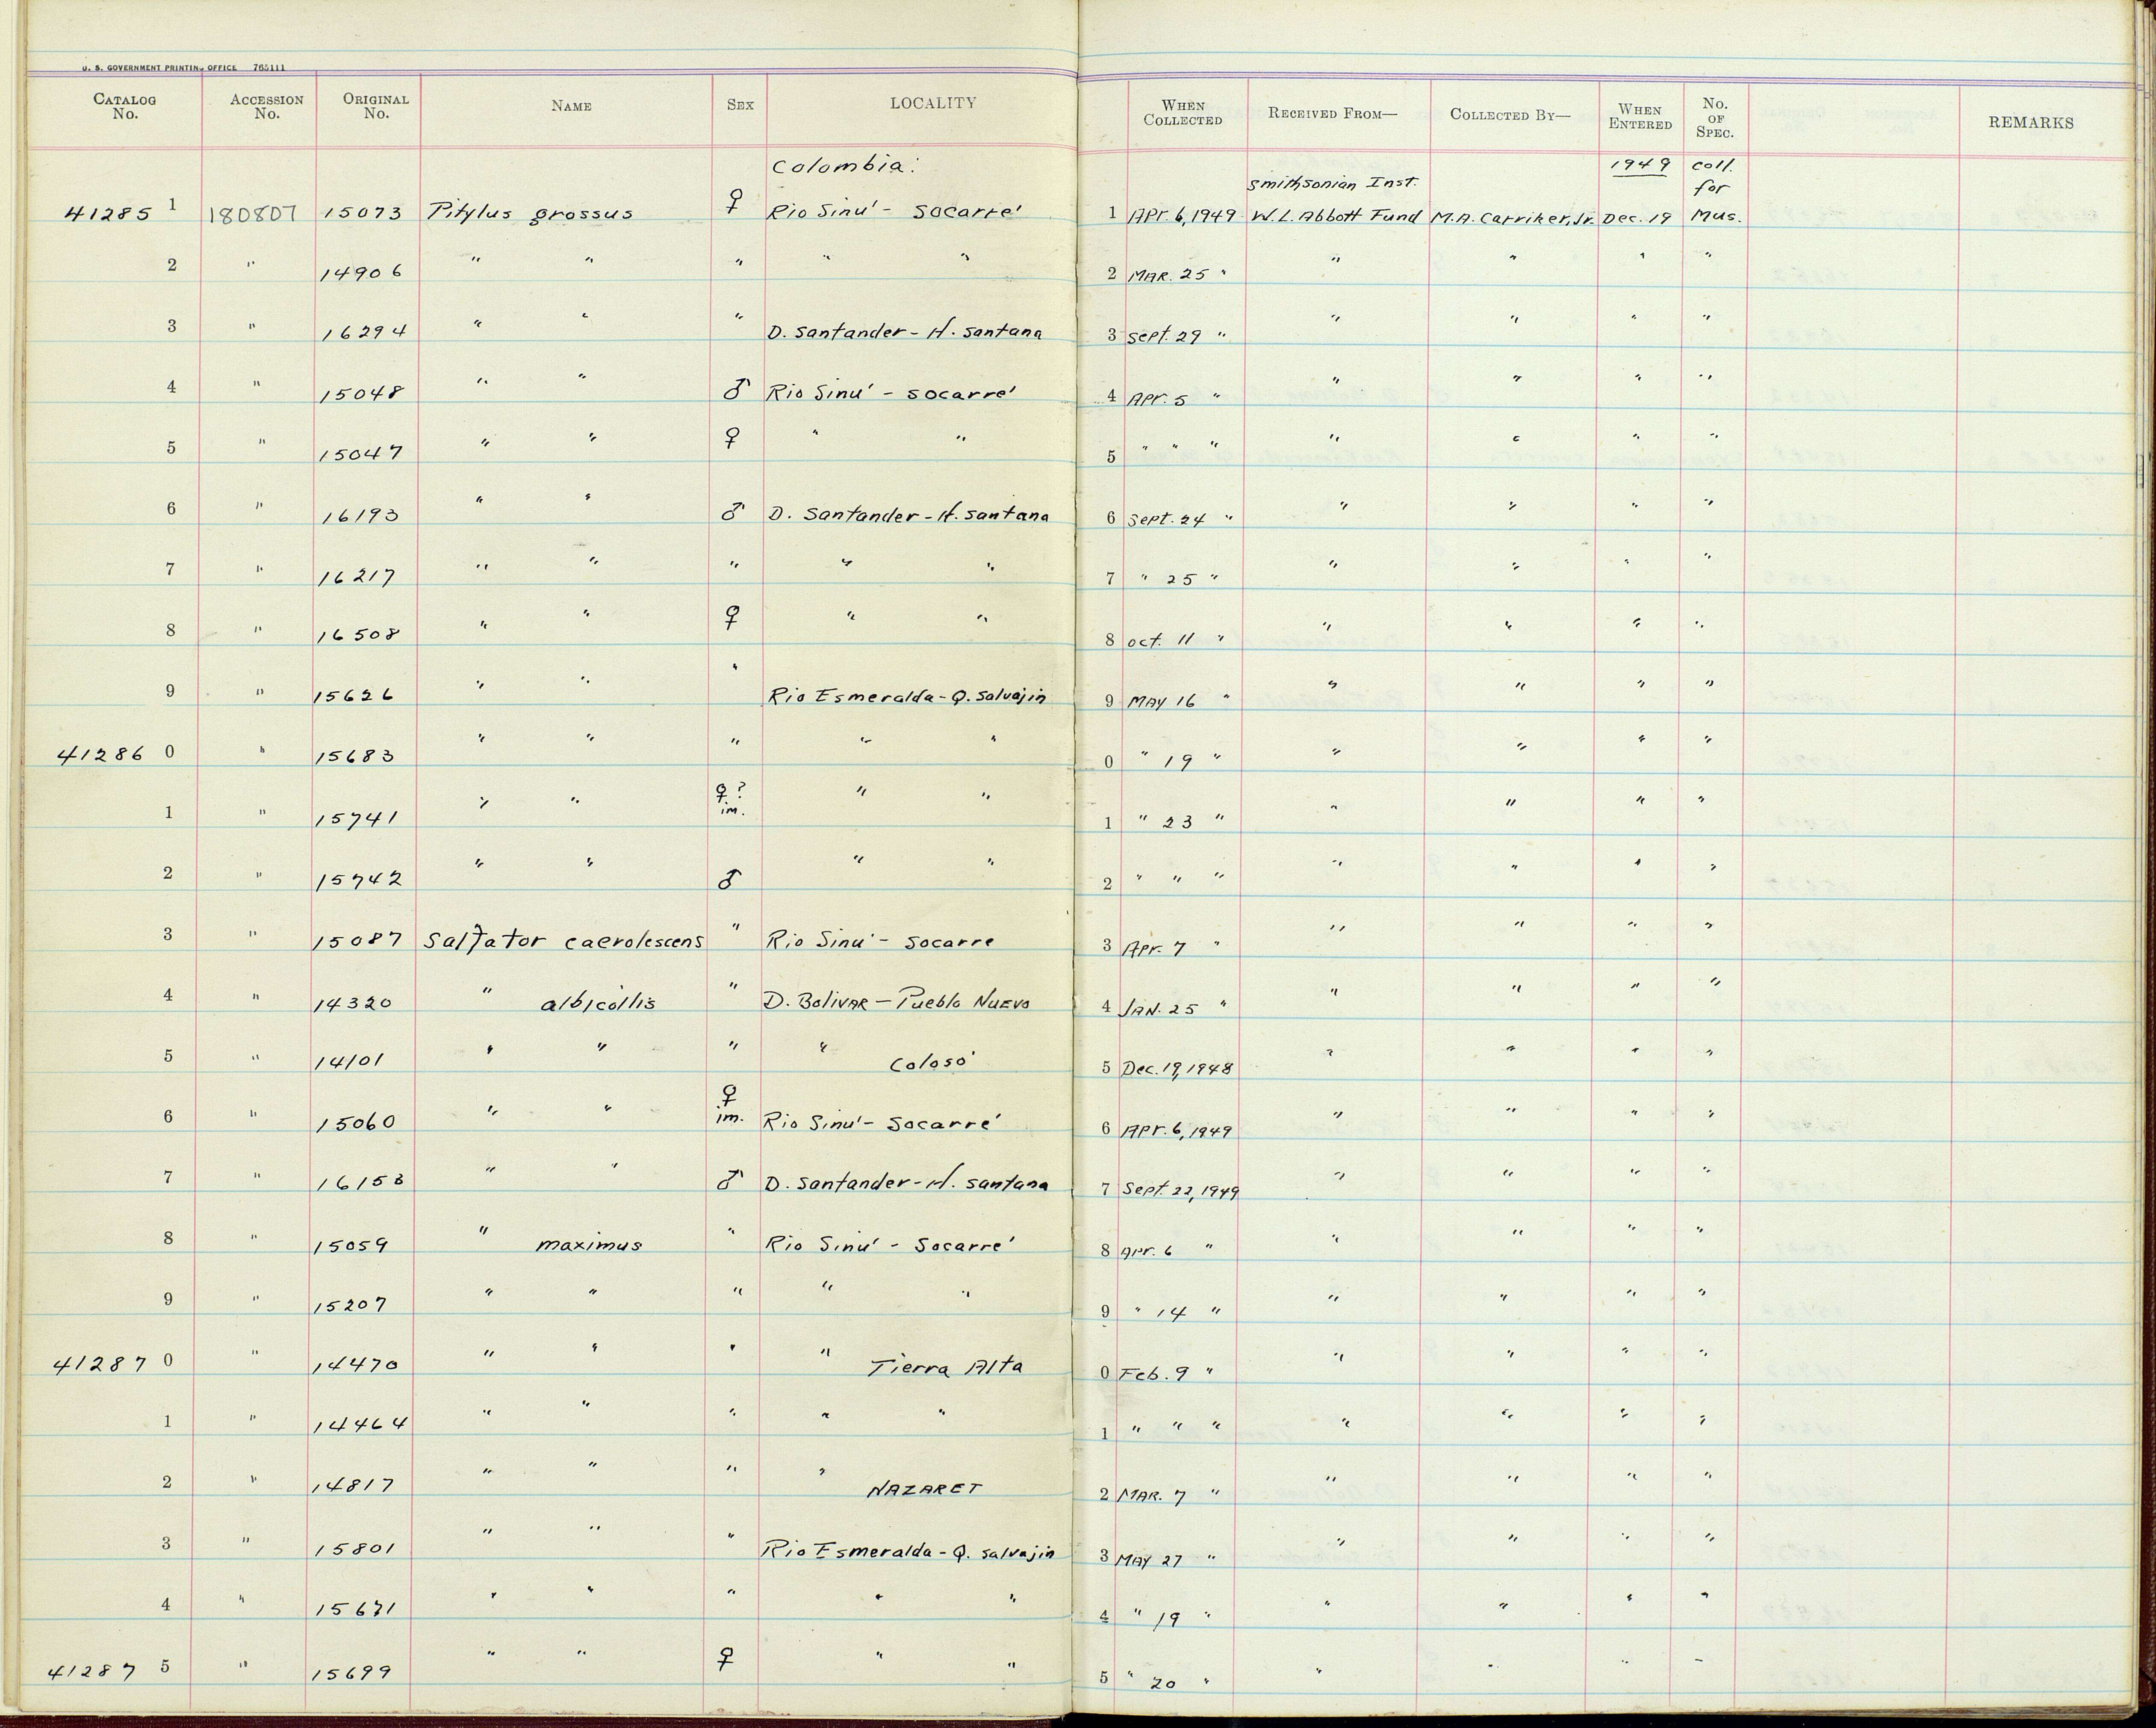 U. S. GOVERNMENT PRINTING OFFICE 765111
CATALOG No. ACCESSION No. ORIGINAL No. NAME SEX LOCALITY WHEN COLLECTED RECEIVED FROM— COLLECTED BY— WHEN ENTERED No. OF SPEC. REMARKS
Colombia: 1949 coll.
Smithsonian Inst. for
41285 1 180807 15073 Pitylus grossus ♀ Rio Sinú - Socarré 1 Apr. 6, 1949 W.L. Abbott Fund M.A. Carriker, Jr. Dec. 19 Mus.
2 " 14906 " " " " " 2 MAR. 25 " " " " "
3 " 16294 " " " D. Santander - H. Santana 3 Sept. 29 " " " " "
4 " 15048 " " ♂ Rio Sinú - Socarré 4 Apr. 5 " " " " "
5 " 15047 " " ♀ " " 5 " " " " " " "
6 " 16193 " " ♂ D. Santander - H. Santana 6 Sept. 24 " " " " "
7 " 16217 " " " " " 7 " 25 " " " " "
8 " 16508 " " ♀ " " 8 Oct. 11 " " " " "
9 " 15626 " " " Rio Esmeralda - Q. Salvajin 9 MAY 16 " " " " "
41286 0 " 15683 " " " " " 0 " 19 " " " " "
1 " 15741 " " ♀? im. " " 1 " 23 " " " " "
2 " 15742 " " ♂ " " 2 " " " " " " "
3 " 15087 Saltator caerolescens " Rio Sinú - Socarre 3 Apr. 7 " " " " "
4 " 14320 " albicollis " D. Bolivar - Pueblo Nuevo 4 JAN. 25 " " " " "
5 " 14101 " " " " Colosó 5 Dec. 19, 1948 " " " "
6 " 15060 " " ♀ im. Rio Sinú - Socarré 6 Apr. 6, 1949 " " " "
7 " 16153 " " ♂ D. Santander - H. Santana 7 Sept. 22, 1949 " " " "
8 " 15059 " maximus " Rio Sinú - Socarré 8 Apr. 6 " " " " "
9 " 15207 " " " " " 9 " 14 " " " " "
41287 0 " 14470 " " " " Tierra Alta 0 Feb. 9 " " " " "
1 " 14464 " " " " " 1 " " " " " " "
2 " 14817 " " " " NAZARET 2 MAR. 7 " " " " "
3 " 15801 " " " Rio Esmeralda - Q. Salvajin 3 MAY 27 " " " " "
4 " 15671 " " " " " 4 " 19 " " " " "
41287 5 " 15699 " " ♀ " " 5 " 20 " " " " "